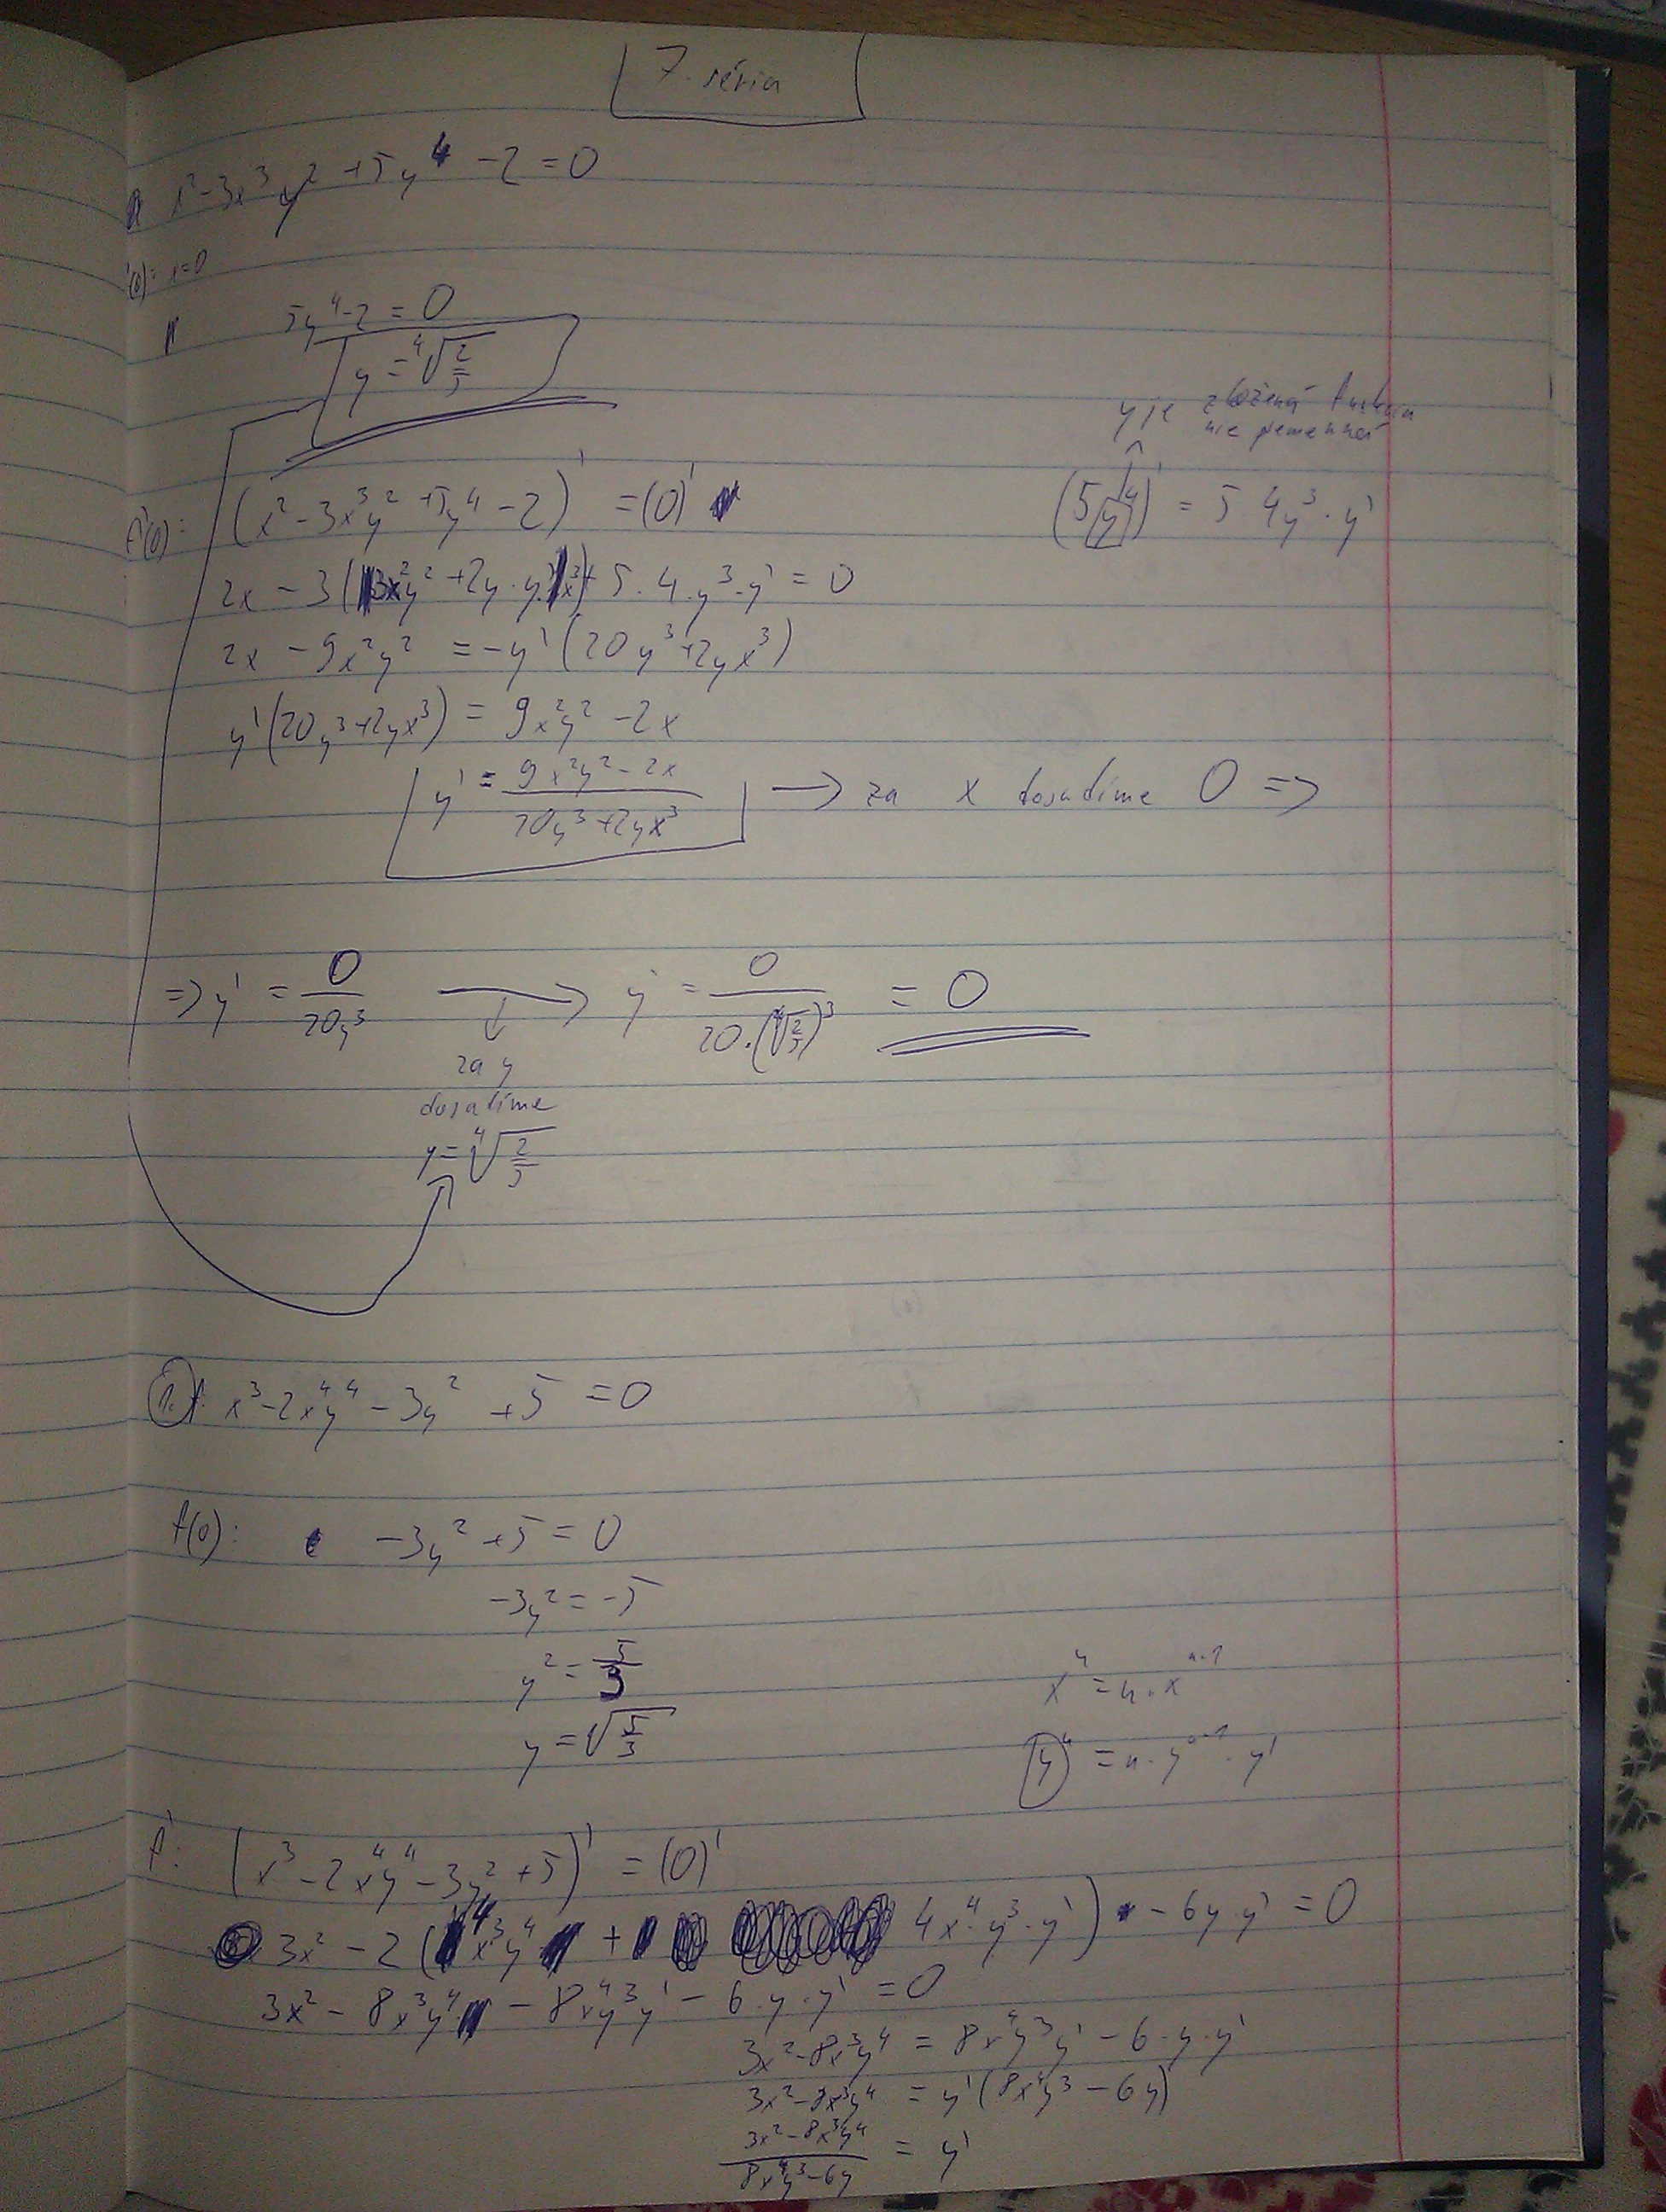 7. séria
x² - 3x³y² + 5y⁴ - 2 = 0
(0): x=0
5y⁴ - 2 = 0
y = ⁴√(2/5)
y je zložená funkcia
nie premenná
f'(0): (x² - 3x³y² + 5y⁴ - 2)' = (0)'
(5y⁴)' = 5 4y³ · y'
2x - 3(3x²y² + 2y · y' x³) + 5 · 4 · y³ · y' = 0
2x - 9x²y² = -y'(20y³ + 2yx³)
y'(20y³ + 2yx³) = 9x²y² - 2x
y' = (9x²y² - 2x)/(20y³ + 2yx³) → za x dosadíme 0 ⇒
⇒ y' = 0/(20y³) → y' = 0/(20 · (⁴√(2/5))³) = 0
za y
dosadíme
y = ⁴√(2/5)
1. f: x³ - 2x⁴y⁴ - 3y² + 5 = 0
f(0): -3y² + 5 = 0
-3y² = -5
y² = 5/3
y = √(5/3)
xⁿ = n · xⁿ⁻¹
(y)ⁿ = n · yⁿ⁻¹ · y'
f': (x³ - 2x⁴y⁴ - 3y² + 5)' = (0)'
3x² - 2(4x³y⁴ + 4x⁴ · y³ · y') - 6y · y' = 0
3x² - 8x³y⁴ - 8x⁴y³y' - 6 · y · y' = 0
3x² - 8x³y⁴ = 8x⁴y³y' - 6 · y · y'
3x² - 8x³y⁴ = y'(8x⁴y³ - 6y)
(3x² - 8x³y⁴)/(8x⁴y³ - 6y) = y'